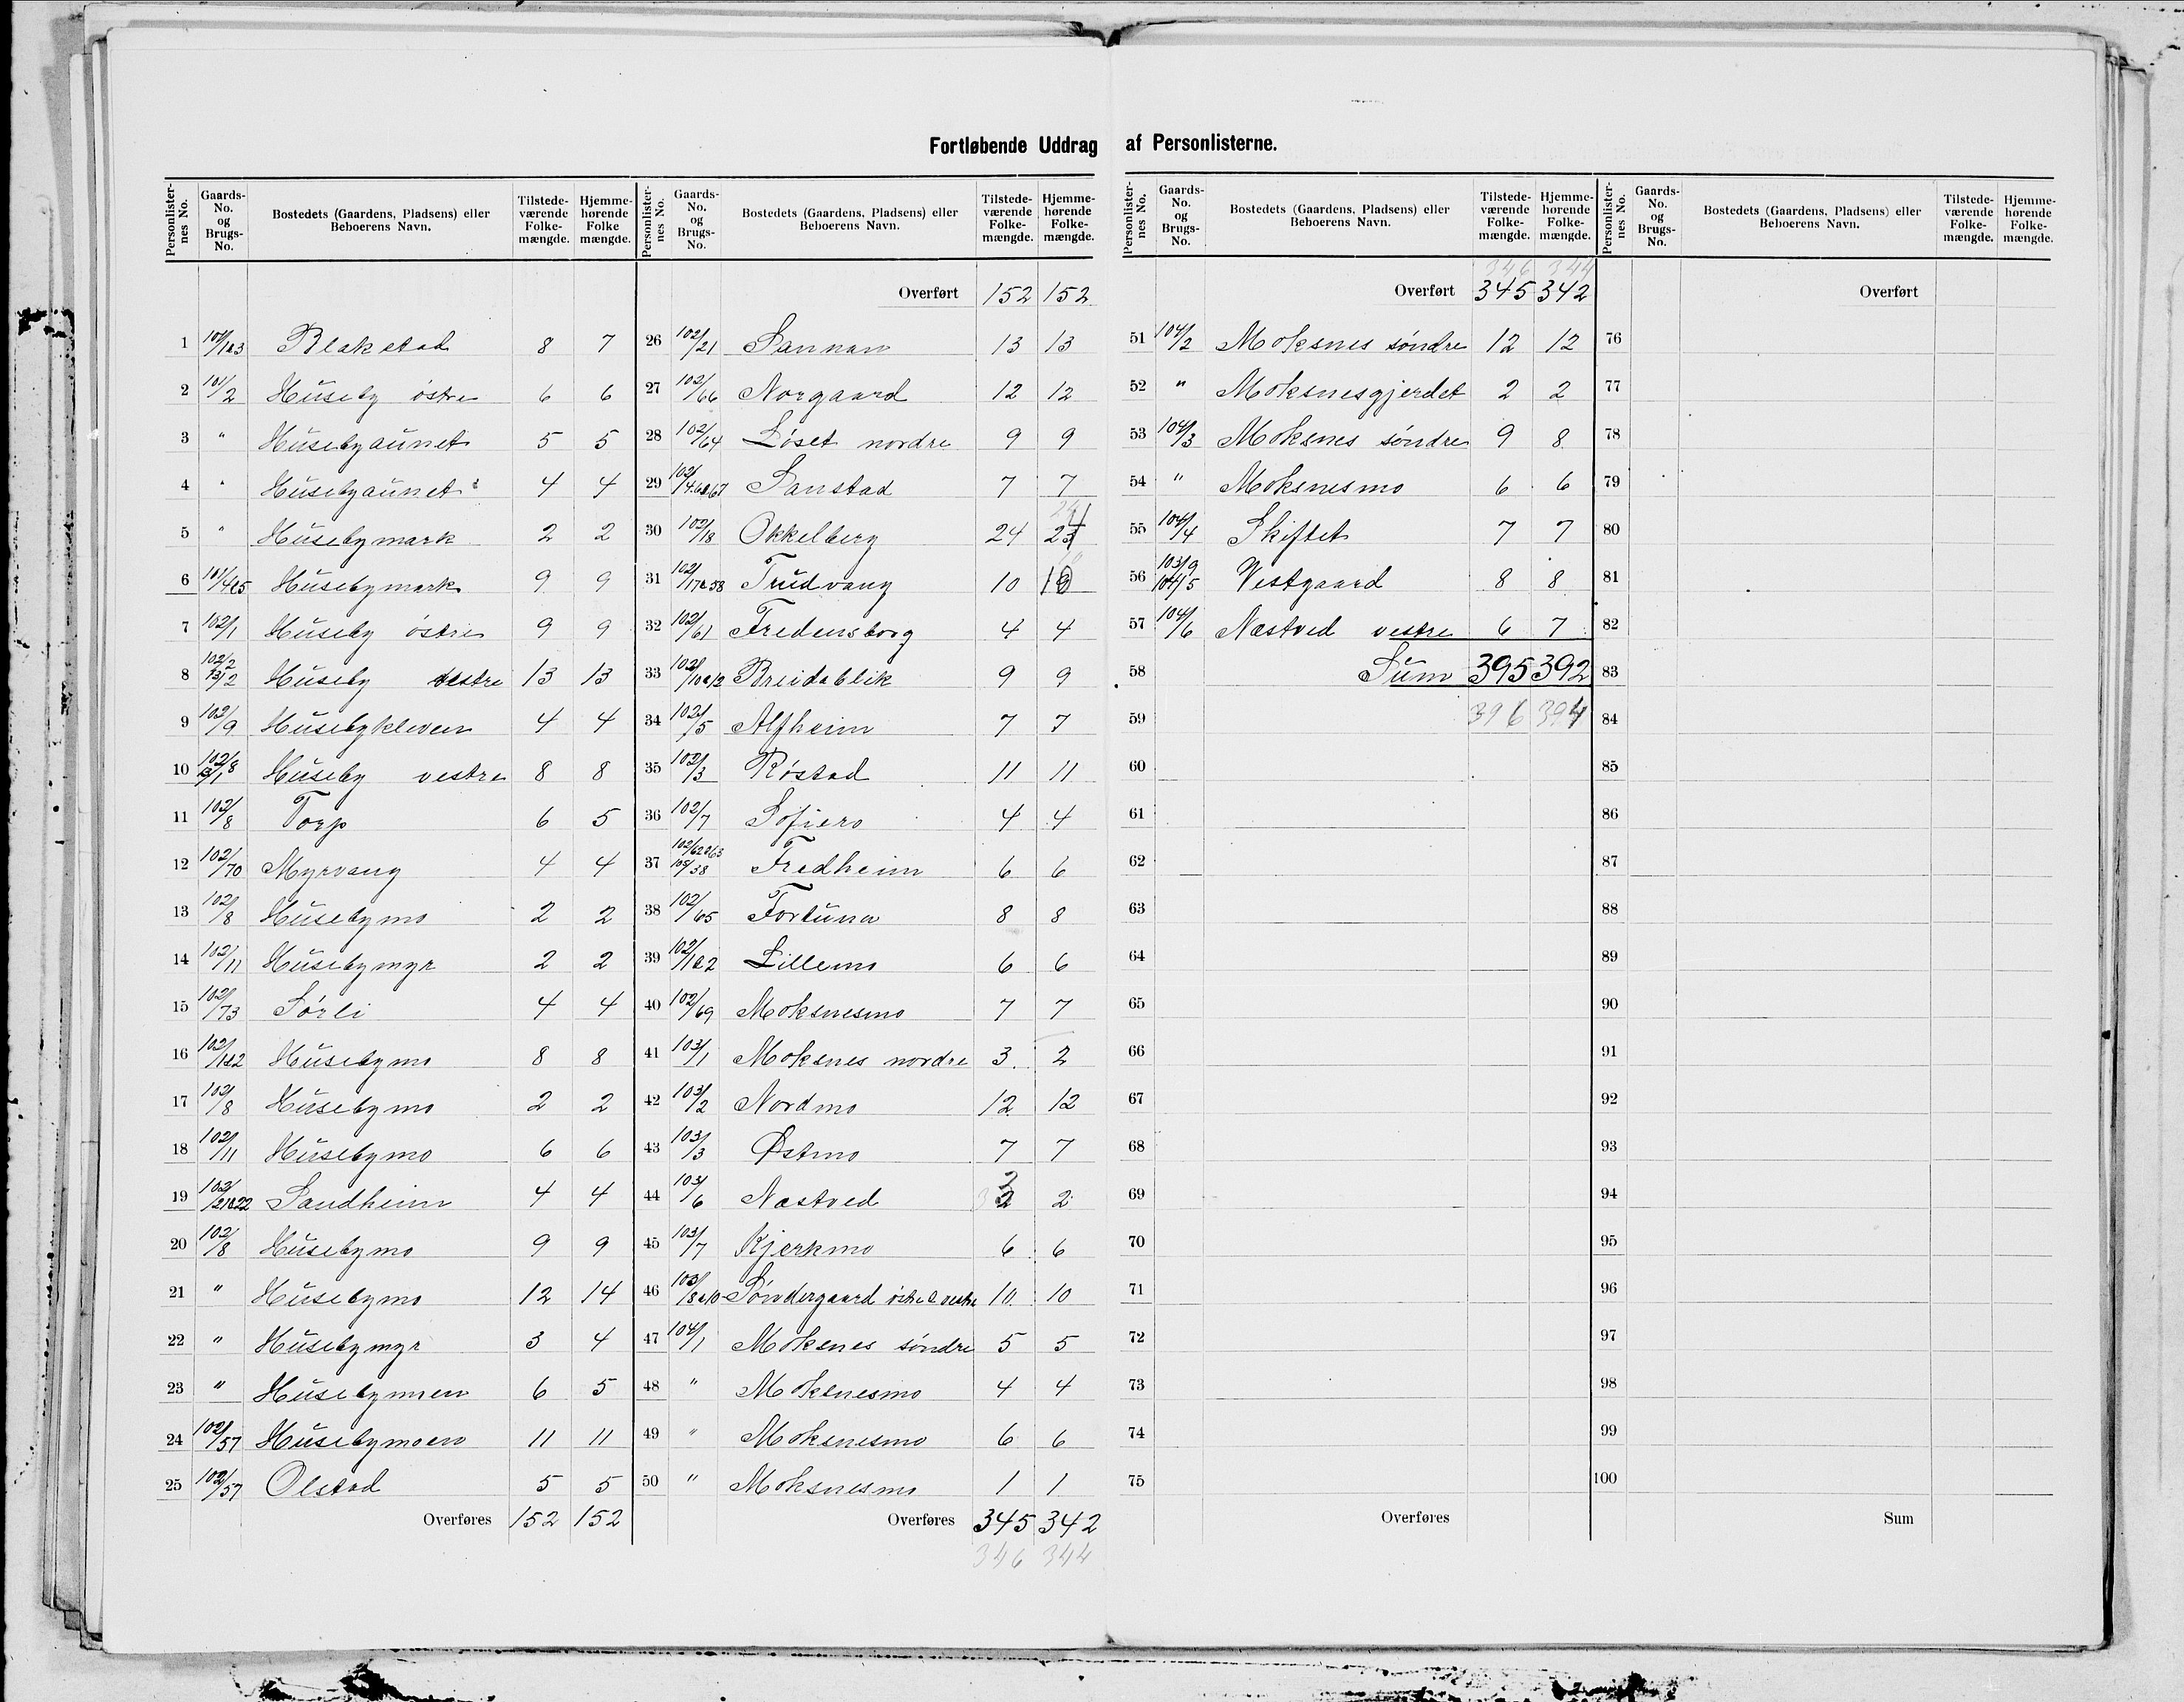 Fortløbende Uddrag af Personlisterne.
Personlister-nes No. Gaards-No. og Brugs-No. Bostedets (Gaardens, Pladsens) eller Beboerens Navn. Tilstede-værende Folke-mængde. Hjemme-hørende Folke mængde.
1 101/1&3 Blakstad 8 7
2 101/2 Huseby østre 6 6
3 " Husebyaunet 5 5
4 " Husebyaunet 4 4
5 " Husebymark 2 2
6 101/4&5 Husebymark 9 9
7 102/1 Huseby østre 9 9
8 102/2 Huseby vestre 13 13
9 102/9 Husebykleven 4 4
10 102/8 Huseby vestre 8 8
11 102/8 Torp 6 5
12 102/70 Myrvang 4 4
13 102/8 Husebymo 2 2
14 102/11 Husebymyr 2 2
15 102/73 Sørli 4 4
16 102/1&2 Husebymo 8 8
17 102/8 Husebymo 2 2
18 102/11 Husebymo 6 6
19 102/21&22 Sandheim 4 4
20 102/8 Husebymo 9 9
21 " Husebymo 12 14
22 " Husebymyr 3 4
23 " Husebymoen 6 5
24 102/57 Husebymoen 11 11
25 102/57 Olstad 5 5
Overføres 152 152
Personlister-nes No. Gaards-No. og Brugs-No. Bostedets (Gaardens, Pladsens) eller Beboerens Navn. Tilstede-værende Folke-mængde. Hjemme-hørende Folke-mængde.
Overført 152 152
26 102/21 Sannan 13 13
27 102/66 Norgaard 12 12
28 102/64 Løset nordre 9 9
29 102/4.6&67 Sanstad 7 7
30 102/18 Okkelberg 24 24
31 102/17&58 Trudvang 10 10
32 102/61 Fredensborg 4 4
33 102/10&12 Breidablik 9 9
34 102/5 Alfheim 7 7
35 102/3 Røstad 11 11
36 102/7 Sofiero 4 4
37 102/62&63 Fredheim 6 6
38 102/65 Fortuna 8 8
39 102/1&2 Lillemo 6 6
40 102/69 Moksnesmo 7 7
41 103/1 Moksnes nordre 3 2
42 103/2 Nordmo 12 12
43 103/3 Østmo 7 7
44 103/6 Næstved 3 2
45 103/7 Kjerkmo 6 6
46 103/8&10 Søndergaard østre & vestre 10 10
47 104/1 Moksnes søndre 5 5
48 " Moksnesmo 4 4
49 " Moksnesmo 6 6
50 " Moksnesmo 1 1
Overføres 345 342
346 344
Personlister-nes No. Gaards-No. og Brugs-No. Bostedets (Gaardens, Pladsens) eller Beboerens Navn. Tilstede-værende Folke-mængde. Hjemme-hørende Folke-mængde.
346 344
Overført 345 342
51 104/2 Moksnes søndre 12 12
52 " Moksnesgjerdet 2 2
53 104/3 Moksnes søndre 9 8
54 " Moksnesmo 6 6
55 104/4 Skiftet 7 7
56 103/9 104/5 Vestgaard 8 8
57 104/6 Næstved vestre 6 7
58 Sum 395 392
59 396 394
60
61
62
63
64
65
66
67
68
69
70
71
72
73
74
75
Overføres
Personlister-nes No. Gaards-No. og Brugs-No. Bostedets (Gaardens, Pladsens) eller Beboerens Navn. Tilstede-værende Folke-mængde. Hjemme-hørende Folke-mængde.
Overført
76
77
78
79
80
81
82
83
84
85
86
87
88
89
90
91
92
93
94
95
96
97
98
99
100
Sum